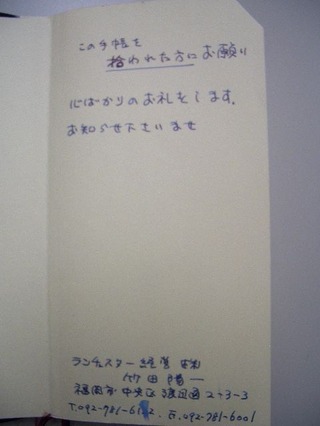 この手帳を
拾われた方にお願い
心ばかりのお礼をします。
お知らせ下さいませ
ランチェスター経営 ㈱
竹田陽一
福岡市中央区渡辺通2-3-3
T.092-781-6
092-781-6001